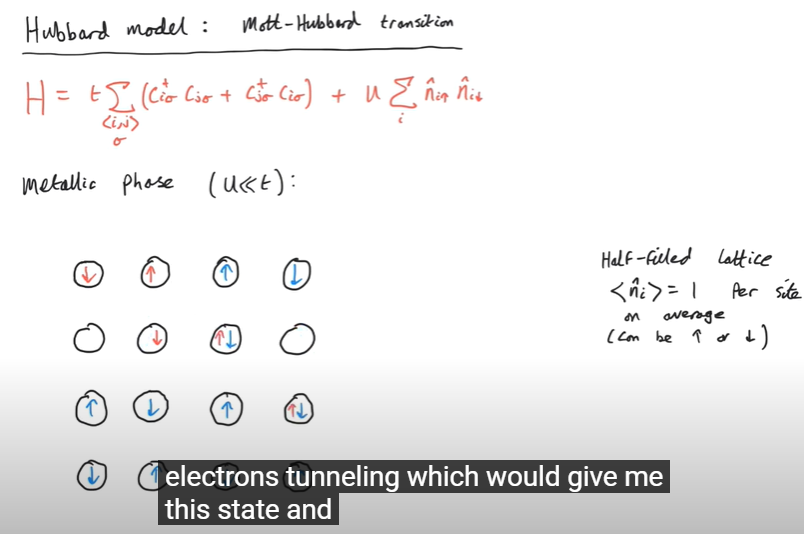 Hubbard model : Mott-Hubbard transition
H = t Σ (c†iσ cjσ + c†jσ ciσ) + u Σ n̂i↑ n̂i↓
<i,j> i
σ
Metallic phase (U≪t):
↓ ↑ ↑ ↓
↓ ↑↓
↑ ↓ ↑ ↑↓
↓ ↑
Half-filled lattice
<n̂i> = 1 per site
on average
(can be ↑ or ↓)
electrons tunneling which would give me
this state and